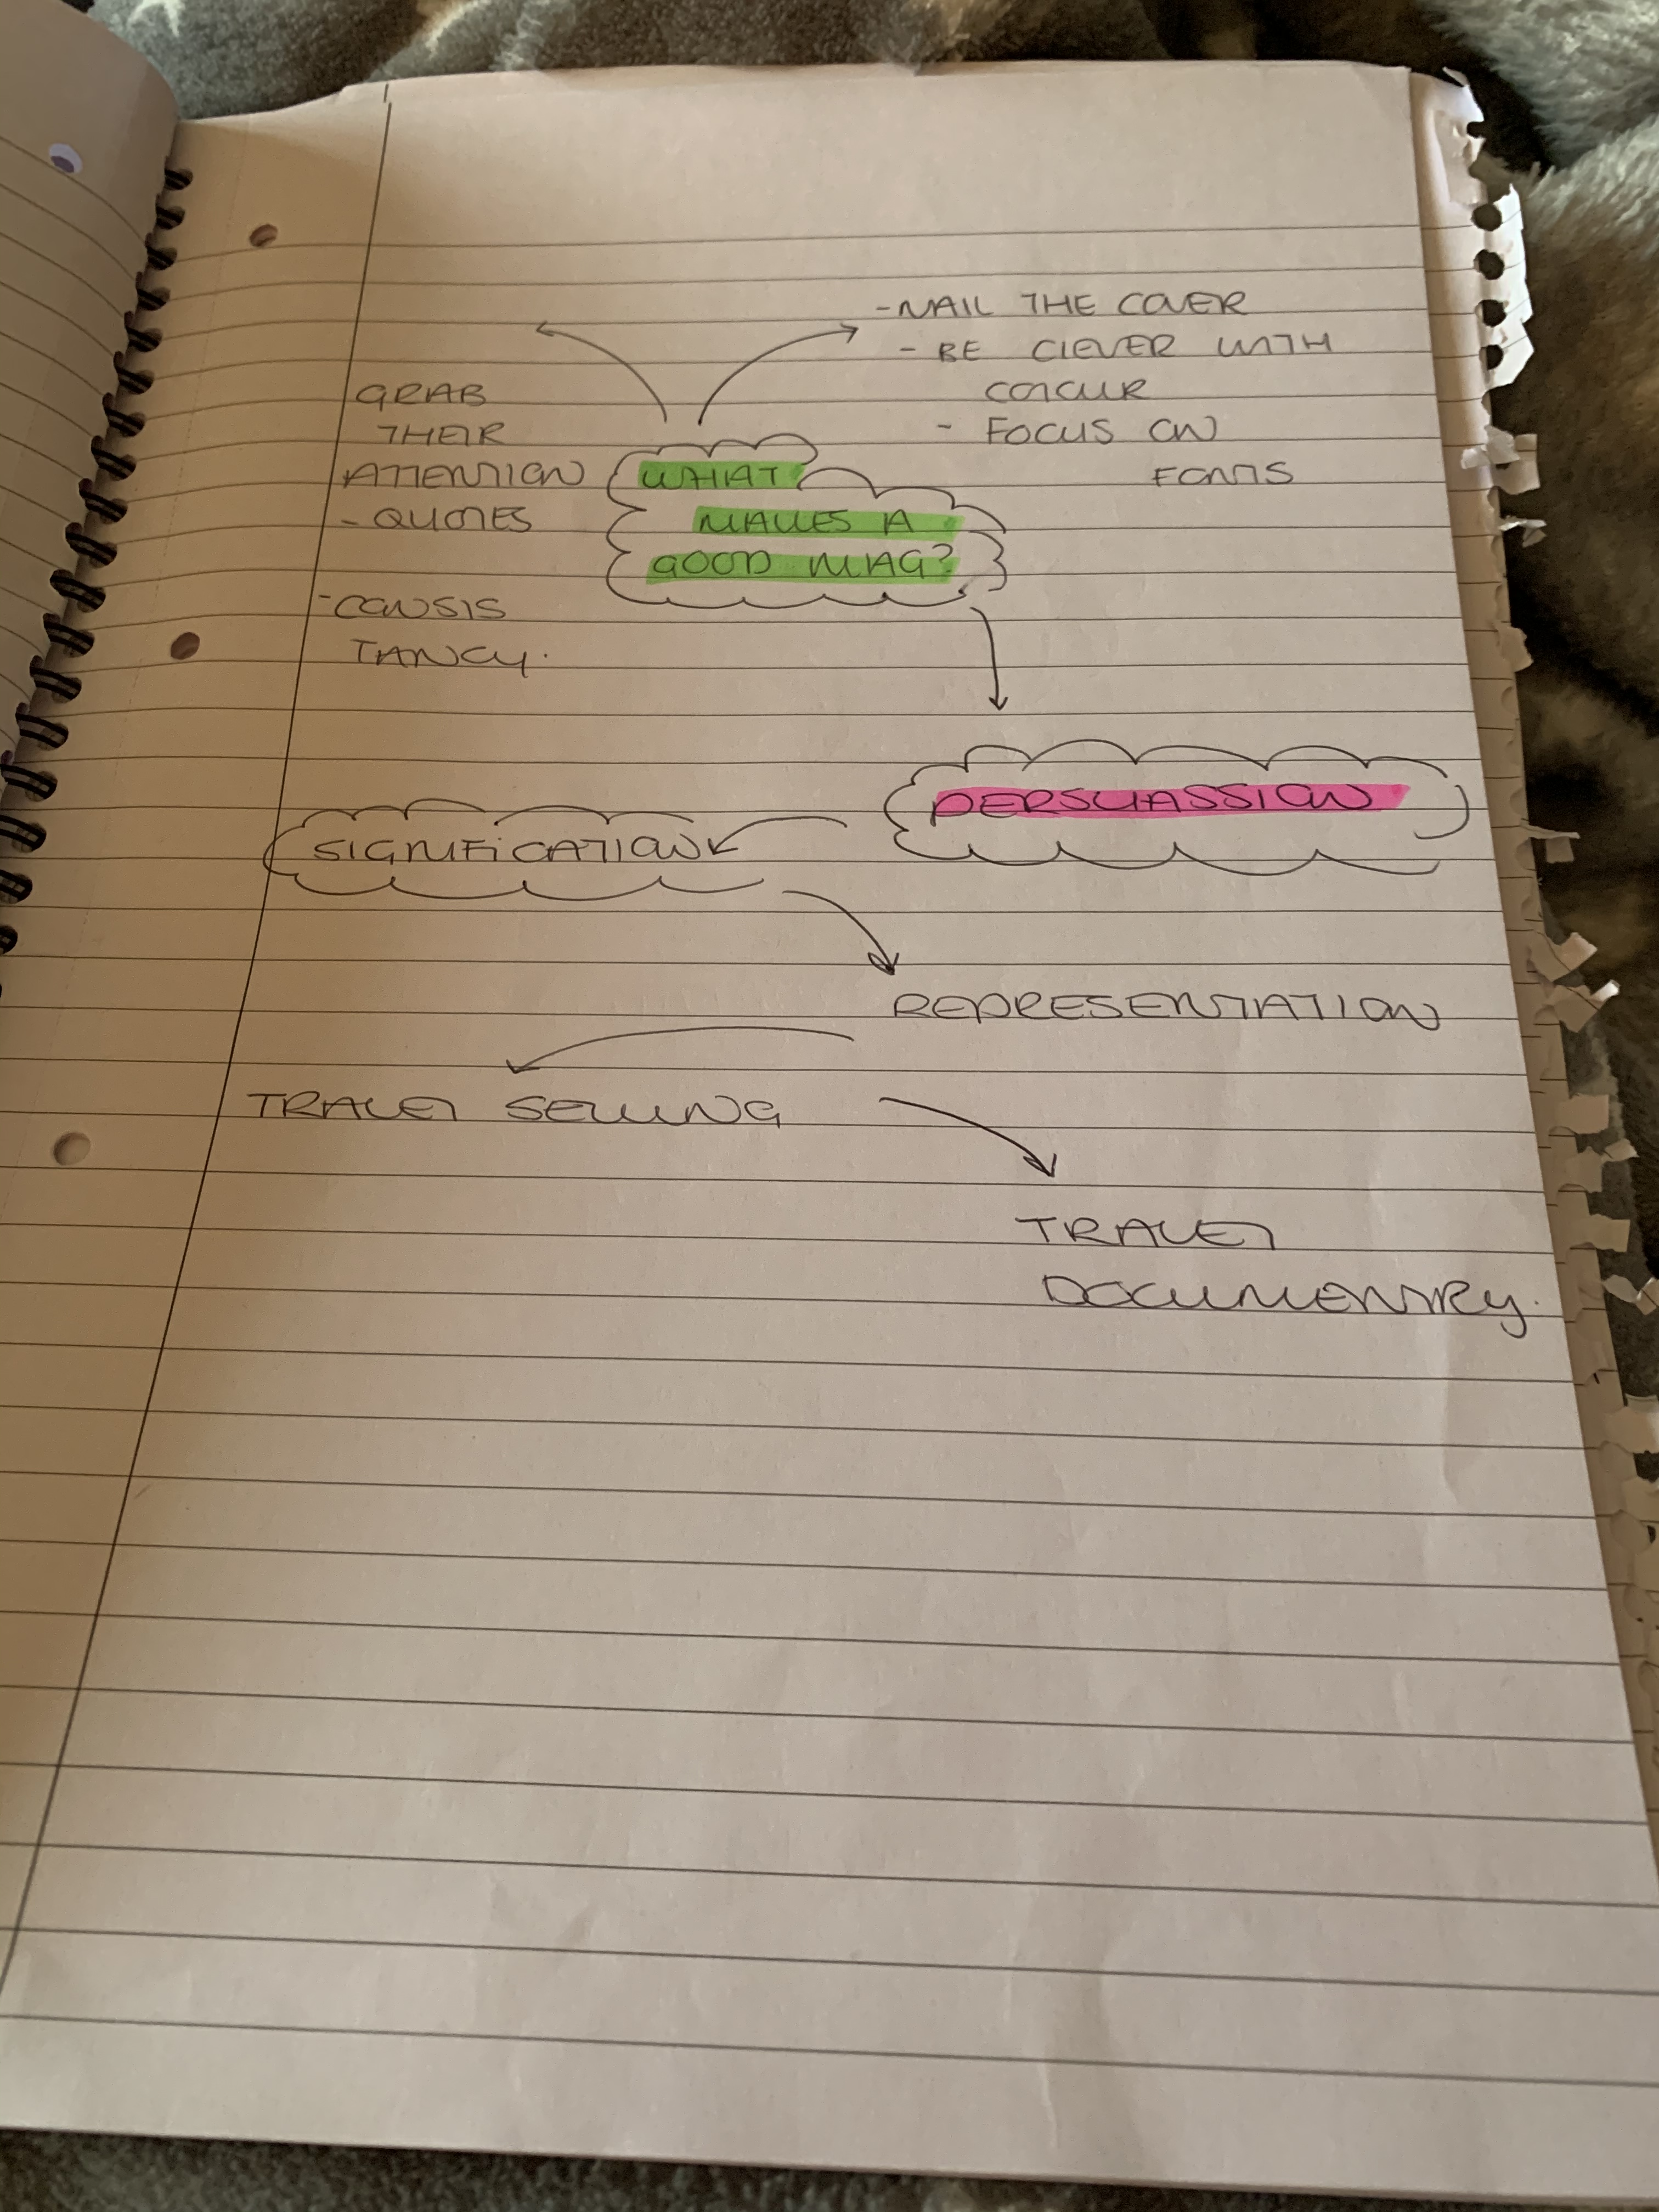 - NAIL THE COVER
- BE CLEVER WITH
COLOUR
- FOCUS ON
FONTS
GRAB
THEIR
ATTENTION
- QUOTES
- CONSIS
TANCY.
WHAT
MAKES A
GOOD MAG?
PERSUASSION
SIGNIFICATION
REPRESENTATION
TRAVEL SELLING
TRAVEL
DOCUMENTRY.